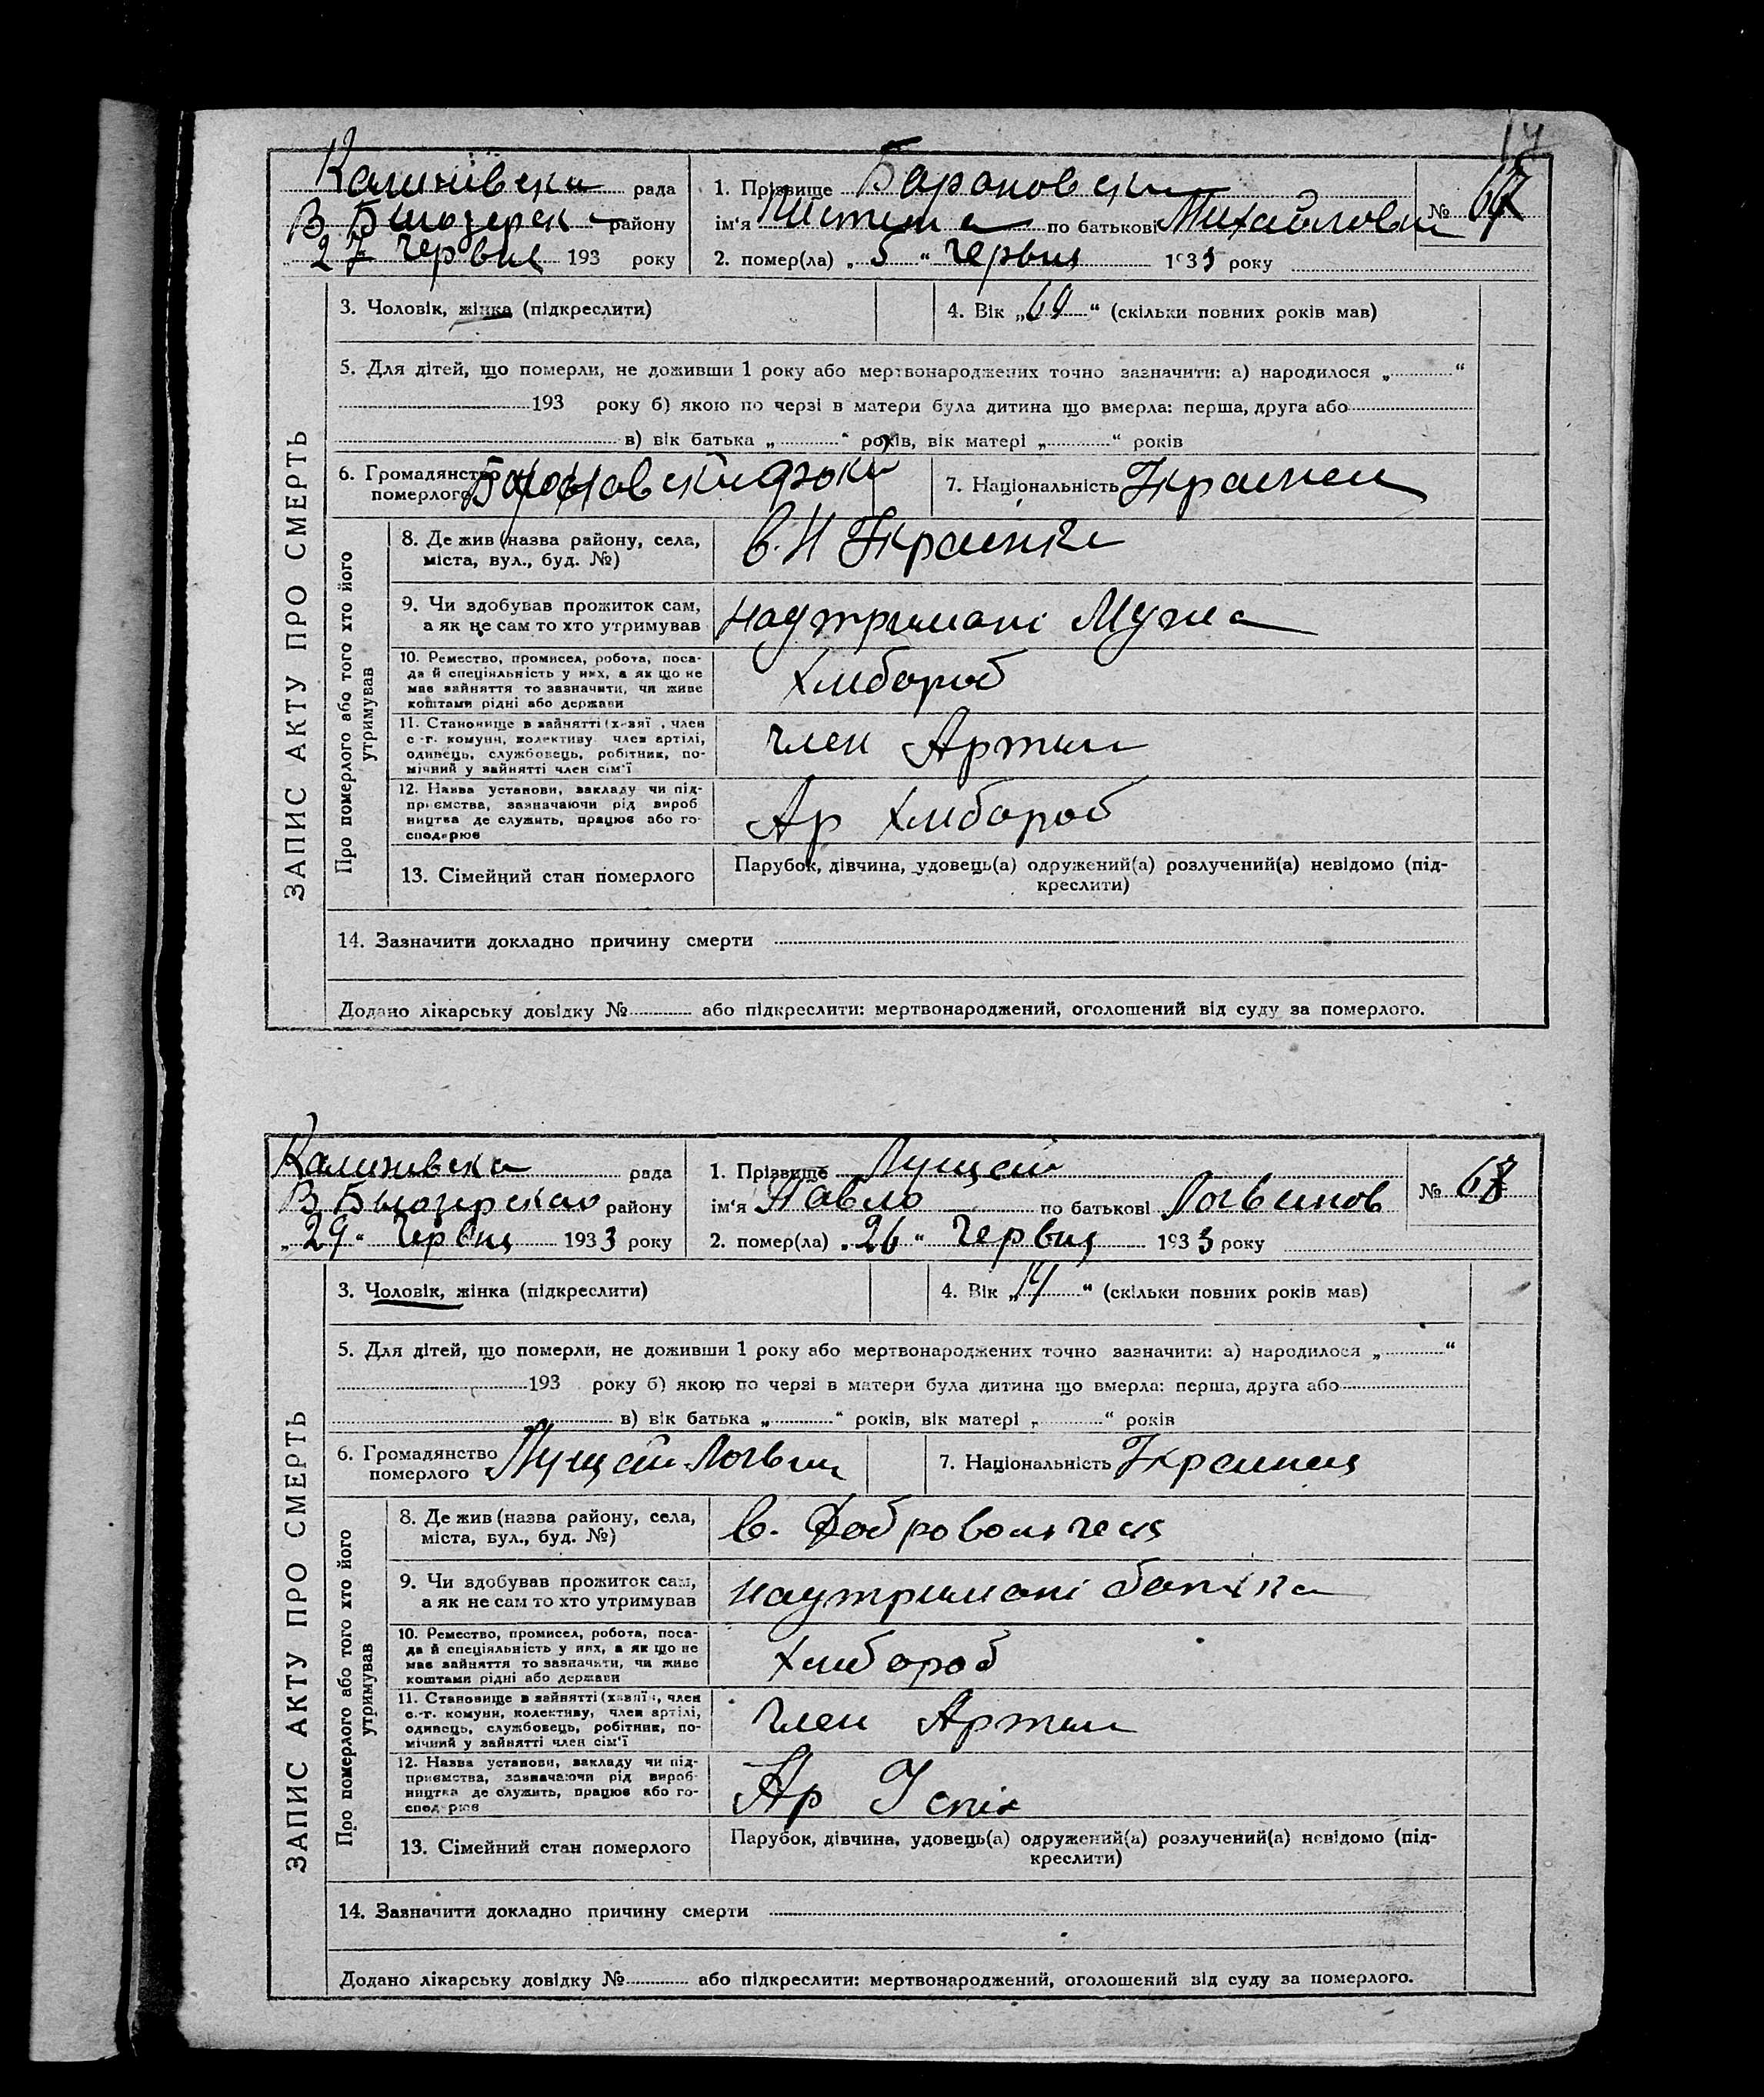 Калинівська рада
В Білозерськ району
27 червня 193 року
1. Прізвище Барановська
ім'я по батькові Михайловна
№ 67
2. помер(ла) „5“ червня 1933 року
ЗАПИС АКТУ ПРО СМЕРТЬ
3. Чоловік, жінка (підкреслити)
4. Вік „ “ (скільки повних років мав)
5. Для дітей, що померли, не доживши 1 року або мертвонароджених точно зазначити: а) народилося „ “
193 року б) якою по черзі в матери була дитина що вмерла: перша, друга або
в) вік батька „ “ років, вік матері „ “ років
6. Громадянство
померлого
7. Національність Украинец
Про померлого або того хто його
утримував
8. Де жив (назва району, села,
міста, вул., буд. №)
в. Н Украинка
9. Чи здобував прожиток сам,
а як не сам то хто утримував
на утримані Мужа
10. Ремество, промисел, робота, поса-
да й спеціяльність у них, а як що не
має зайняття то зазначити, чи живе
коштами рідні або держави
Хлібороб
11. Становище в зайнятті (хазяї , член
с.-г. комуни, колективу, член артілі,
одинець, службовець, робітник, по-
мічний у зайнятті член сім'ї
член Артили
12. Назва установи, закладу чи під-
приємства, зазначаючи рід вироб
ництва де служить, працює або го-
сподарює
Ар Хлібороб
13. Сімейний стан померлого
Парубок, дівчина, удовець(а) одружений(а) розлучений(а) невідомо (під-
креслити)
14. Зазначити докладно причину смерти
Додано лікарську довідку № або підкреслити: мертвонароджений, оголошений від суду за померлого.
Калинівська рада
В Білозерского району
„29“ Червня 1933 року
1. Прізвище Лущей
ім'я Павло по батькові Логвинов
№ 68
2. помер(ла) „26“ Червня 1933 року
ЗАПИС АКТУ ПРО СМЕРТЬ
3. Чоловік, жінка (підкреслити)
4. Вік „14“ (скільки повних років мав)
5. Для дітей, що померли, не доживши 1 року або мертвонароджених точно зазначити: а) народилося „ “
193 року б) якою по черзі в матери була дитина що вмерла: перша, друга або
в) вік батька „ “ років, вік матері „ “ років
6. Громадянство
померлого Лущей Логвин
7. Національність Украинец
Про померлого або того хто його
утримував
8. Де жив (назва району, села,
міста, вул., буд. №)
в.
9. Чи здобував прожиток сам,
а як не сам то хто утримував
на утримані батька
10. Ремество, промисел, робота, поса-
да й спеціяльність у них, а як що не
має зайняття то зазначити, чи живе
коштами рідні або держави
Хлібороб
11. Становище в зайнятті (хазяї , член
с.-г. комуни, колективу, член артілі,
одинець, службовець, робітник, по-
мічний у зайнятті член сім'ї
Член Артили
12. Назва установи, закладу чи під-
приємства, зазначаючи рід вироб-
ництва де служить, працює або го-
сподарює
Ар Успіх
13. Сімейний стан померлого
Парубок, дівчина, удовець(а) одружений(а) розлучений(а) невідомо (під-
креслити)
14. Зазначити докладно причину смерти
Додано лікарську довідку № або підкреслити: мертвонароджений, оголошений від суду за померлого.